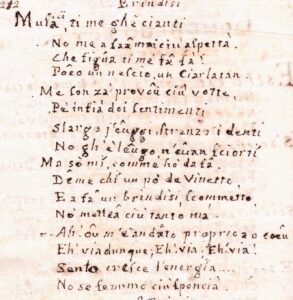 212
Brindisi
Musa, ti me ghè cianti
No me a faâ mai ciù aspettâ
Che figûa ti me fæ fâ!
Poco un nescio, un Ciarlatan.
Me son zà provòu ciù votte,
Pe infiâ doî sentimenti
Slargo j'êuggi, strenzo i denti
No gh'è lêugo n'êuan sciortî
Ma so mi, somme ho da fâ.
Dême chì un pò de Vinetto,
E a fâ un brindisi scommetto
No mettiâ ciù tanto mâ.
Ah: oû m'è andæto proprio a o cœu
Eh! via dunque; Eh! via. Eh! via!
Sento cresce l'energia....
No se femmo ciù sponciâ.